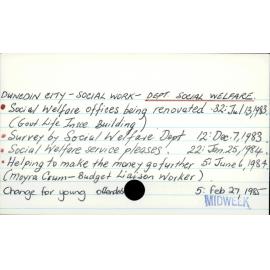 DUNEDIN CITY - SOCIAL WORK - DEPT SOCIAL WELFARE.
• Social Welfare offices being renovated. 32: Jul 13, 1983
(Govt Life Insce Building)
• Survey by Social Welfare Dept 12: Dec 7, 1983
• Social Welfare service pleases'. 22: Jan 25/1984.
• Helping to make the money go further 5: June 6, 1984
(Moyra Coum - Budget Liaison Worker)
Change for young 5: Feb 27, 1985
MIDWEEK